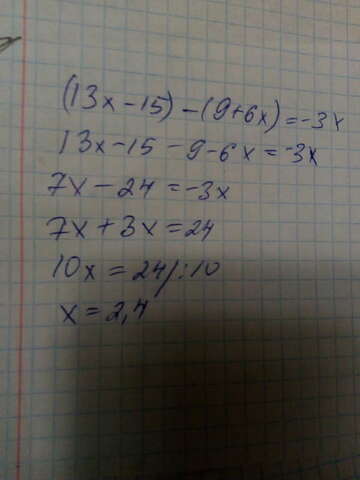 (13x-15)-(9+6x)=-3x
13x-15-9-6x=-3x
7x-24=-3x
7x+3x=24
10x=24/:10
x=2,4